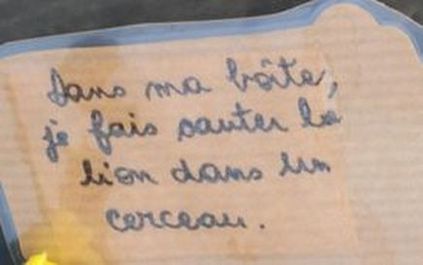 Dans ma boîte,
je fais sauter le
lion dans un
cerceau.